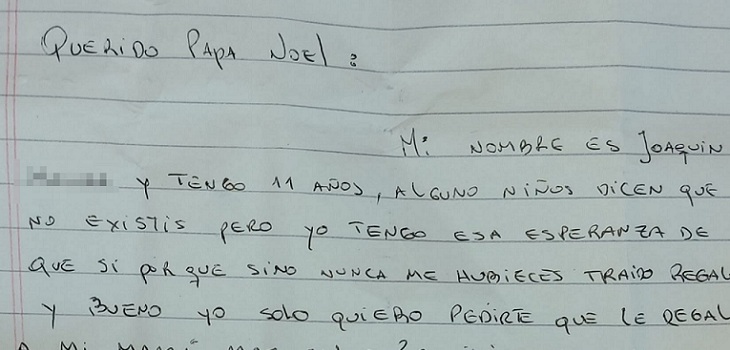 QUERIDO PAPA NOEL:
Mi NOMBRE ES JOAQUIN
Y TENGO 11 AÑOS, ALGUNO NIÑOS DICEN QUE
NO EXISTIS PERO YO TENGO ESA ESPERANZA DE
QUE SI PORQUE SINO NUNCA ME HUBIECES TRAIDO REGAL
Y BUENO YO SOLO QUIERO PEDIRTE QUE LE REGAL